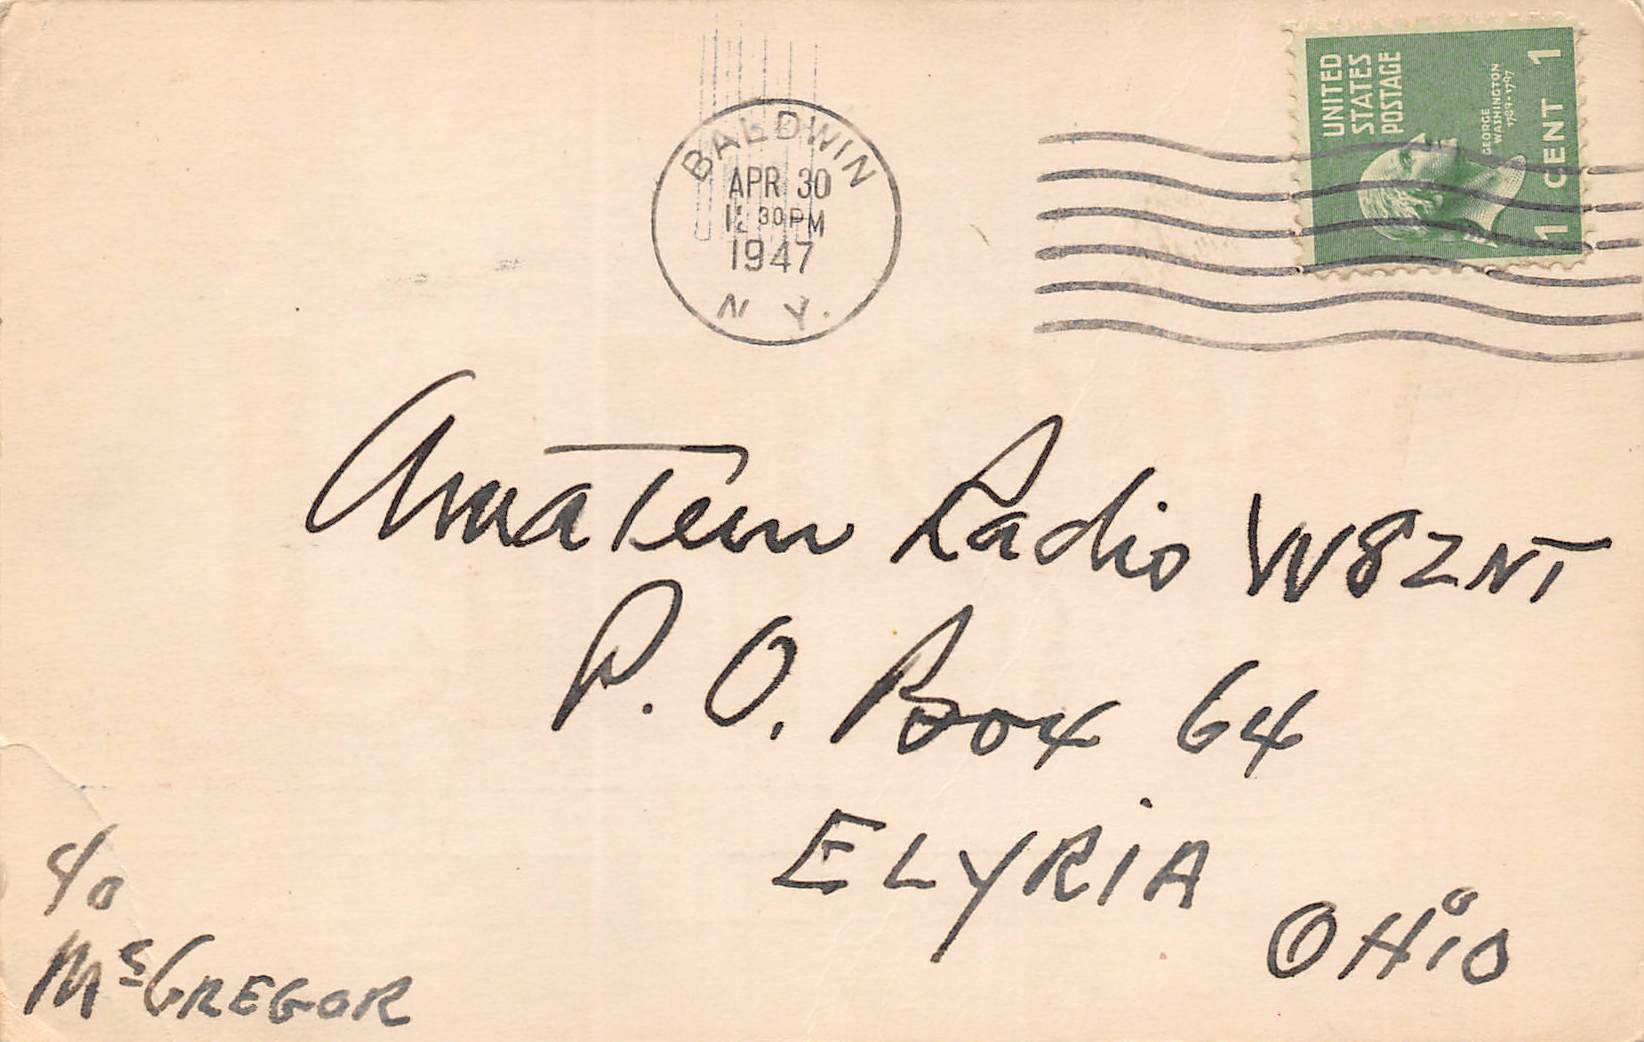 BALDWIN
APR 30
12 30 PM
1947
N Y.
UNITED
STATES
POSTAGE
GEORGE
WASHINGTON
1789-1797
1 CENT 1
Amateur Radio W8ZNT
P. O. Box 64
ELYRIA
OHIO
c/o
McGREGOR